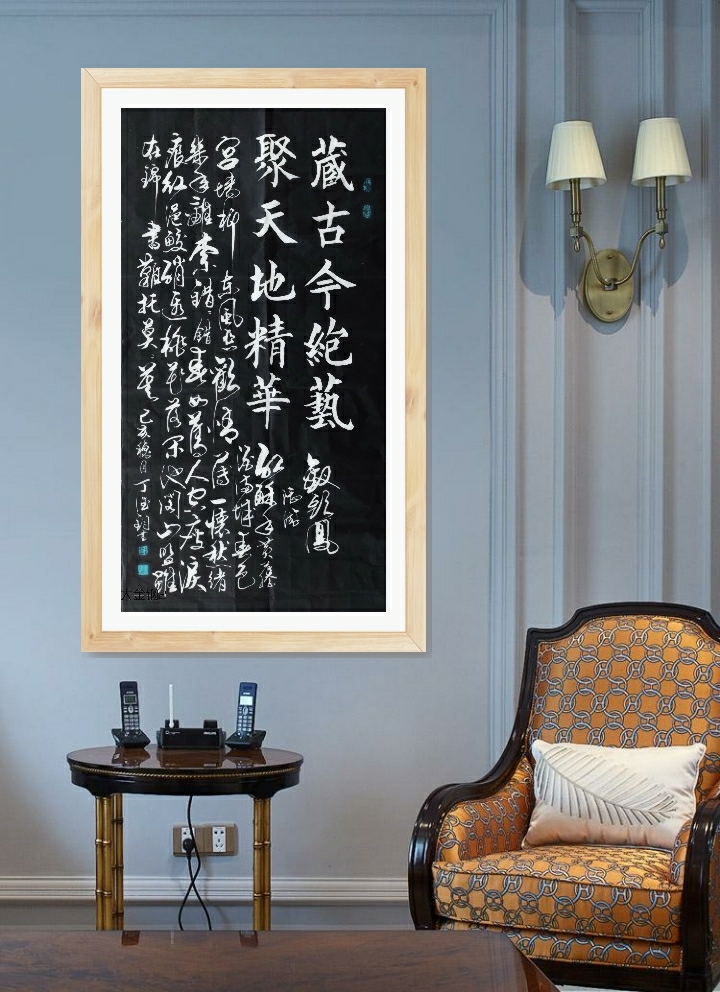 藏古今絕藝
釵頭鳳
聚天地精華
陸游
紅酥手黃藤
酒滿城春色
宮墻柳東風惡歡情薄一懷愁緒
幾年離索錯錯錯春如舊人空瘦淚
痕紅浥鮫綃透桃花落閑池閣山盟雖
在錦書難托莫莫莫己亥穐月丁